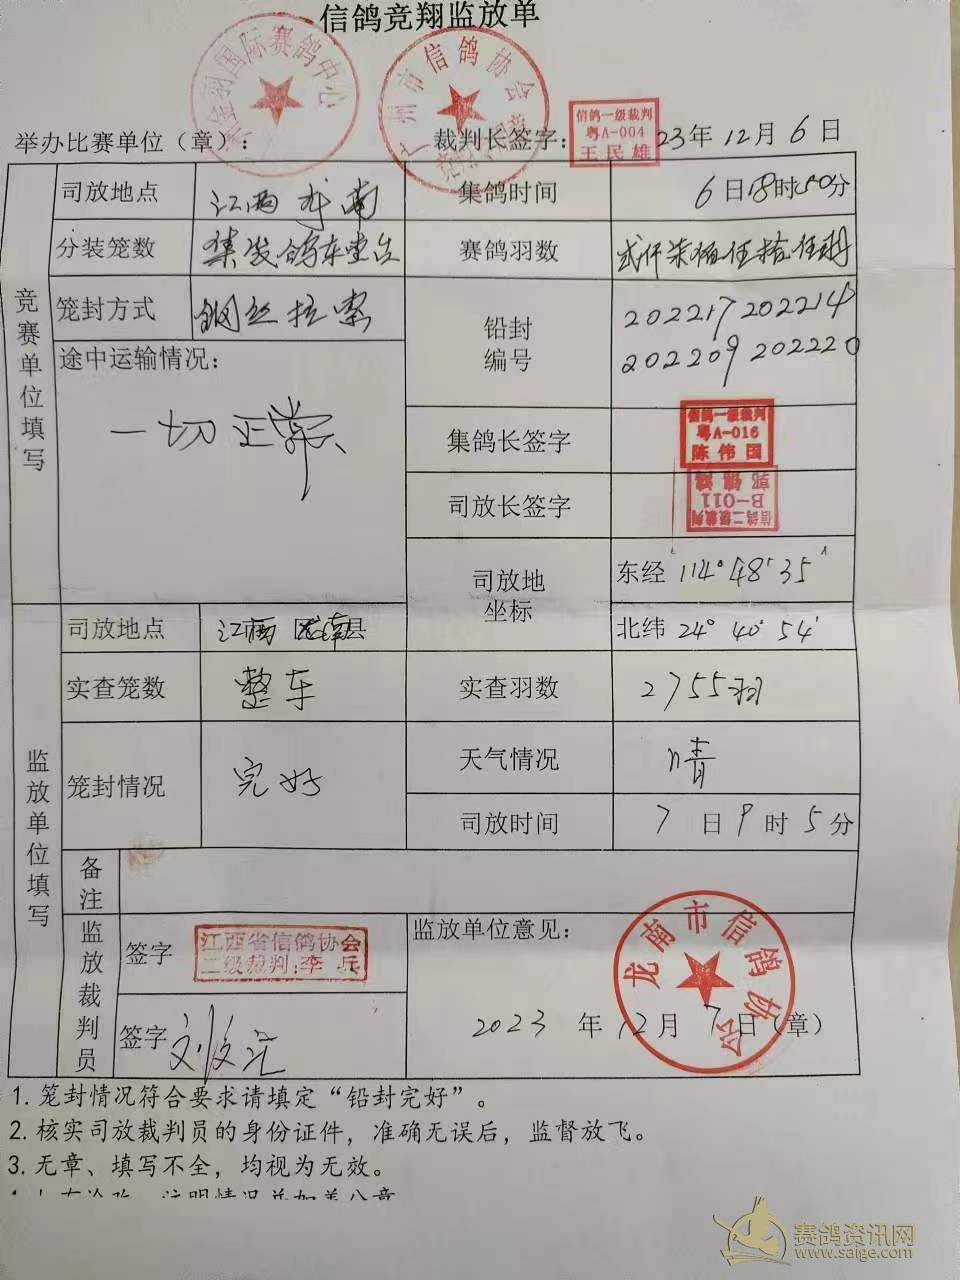 信鸽竞翔监放单
金羽国际赛鸽中心
广州市信鸽协会
举办比赛单位（章）：
裁判长签字：
信鸽一级裁判
粤A-004
王民雄
23年12月6日
竞赛单位填写
司放地点
江西龙南
集鸽时间
6日18时50分
分装笼数
集发鸽车壹台
赛鸽羽数
贰仟柒佰伍拾伍羽
笼封方式
钢丝拉索
铅封
编号
202217 202214
202209 202220
途中运输情况：
一切正常
集鸽长签字
信鸽一级裁判
粤A-016
陈伟国
司放长签字
信鸽二级裁判
B-011
司放地
坐标
东经 114°48′35″
北纬 24°40′54′
监放单位填写
司放地点
江西 龙南县
实查笼数
整车
实查羽数
2755羽
笼封情况
完好
天气情况
晴
司放时间
7日9时5分
备注
监放裁判员
签字
江西省信鸽协会
二级裁判:李兵
签字
监放单位意见：
龙南市信鸽协会
2023年12月7日（章）
1. 笼封情况符合要求请填定“铅封完好”。
2. 核实司放裁判员的身份证件，准确无误后，监督放飞。
3. 无章、填写不全，均视为无效。
赛鸽资讯网
www.saige.com